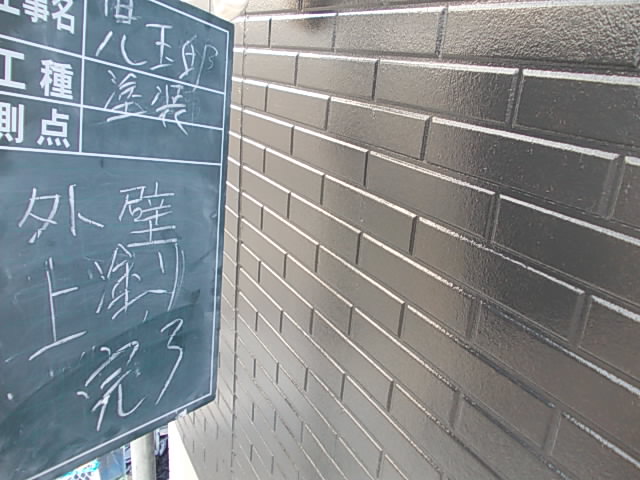 工事名
八王邸
工種 塗装
測点
外壁
上塗り
完了